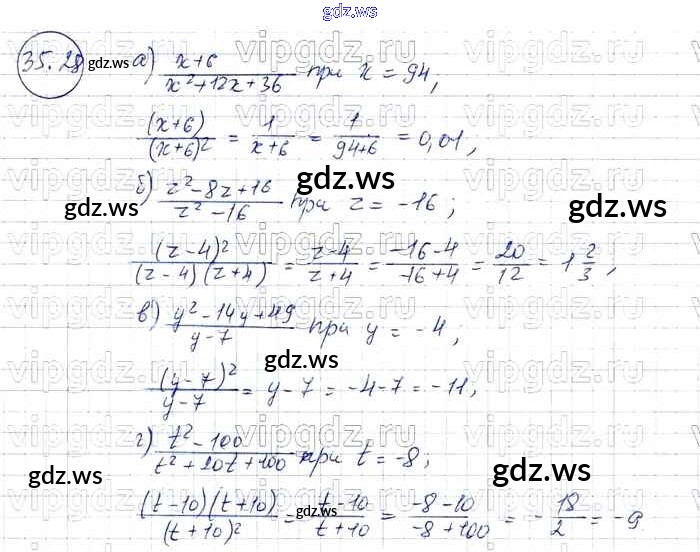 gdz.ws
35.28 gdz.ws а) (x+6)/(x²+12x+36) при x = 94,
(x+6)/(x+6)² = 1/(x+6) = 1/(94+6) = 0,01,
gdz.ws
б) (z²-8z+16)/(z²-16) при z = -16;
gdz.ws gdz.ws
(z-4)²/((z-4)(z+4)) = (z-4)/(z+4) = (-16-4)/(-16+4) = 20/12 = 1 2/3,
в) (y²-14y+49)/(y-7) при y = -4;
gdz.ws
(y-7)²/(y-7) = y-7 = -4-7 = -11,
г) (t²-100)/(t²+20t+100) при t = -8;
gdz.ws gdz.ws
((t-10)(t+10))/(t+10)² = (t-10)/(t+10) = (-8-10)/(-8+100) = -18/2 = -9
gdz.ws
vipgdz.ru